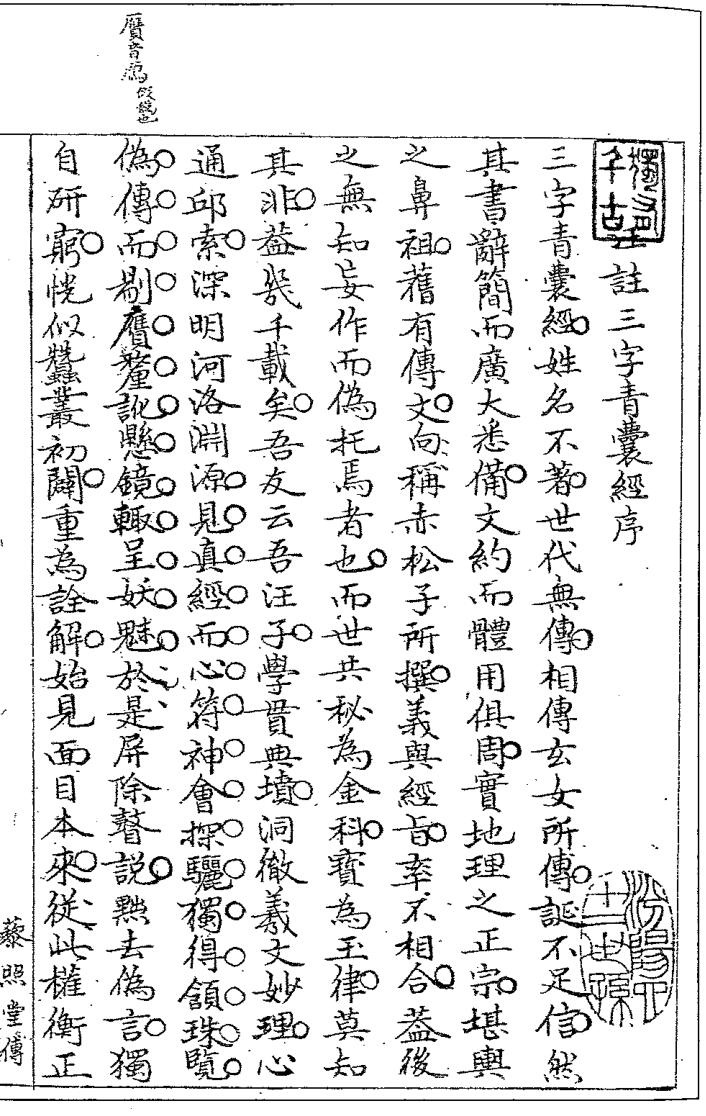 註三字青囊經序
三字青囊經姓名不著世代無傳相傳玄女所傳誕不足信然
其書辭簡而廣大悉備文約而體用俱周實地理之正宗堪輿
之鼻祖舊有傳文向稱赤松子所撰義與經旨率不相合葢後
之無知妄作而偽托焉者也而世共秘為金科寶為玉律莫知
其非葢幾千載矣吾友云吾汪子學貫典墳洞徹羲文妙理心
通邱索深明河洛淵源見真經而心符神會探驪獨得頷珠覽
偽傳而剔贗釐訛懸鏡輒呈妖魅於是屏除瞽説㸃去偽言獨
自研窮恍似蠶叢初闢重為詮解始見面目本來從此權衡正
贗音鴈
藜照堂傳